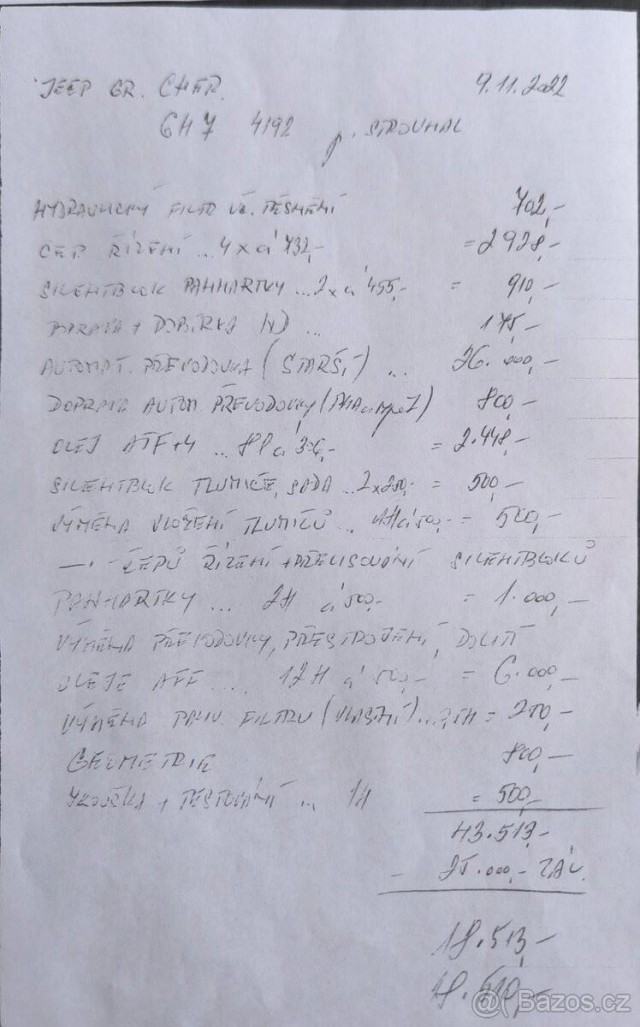 JEEP GR. CHER. 9.11.2022
6H7 4192 p. STROUHAL
HYDRAULICKÝ FILTR VČ. TĚSNĚNÍ 702,-
ČEP ŘÍZENÍ ... 4 x á 732,- = 2928,-
SILENTBLOK PANHARTKY ... 2 x á 455,- = 910,-
DOPRAVA + DOBÍRKA 175,-
AUTOMAT. PŘEVODOVKA (STARŠÍ) ... 26.000,-
DOPRAVA AUTOM PŘEVODOVKY 800,-
OLEJ ATF+4 ... 8l á 306,- = 2.448,-
SILENTBLOK TLUMIČE, SADA ... 2x250,- = 500,-
VÝMĚNA ULOŽENÍ TLUMIČŮ ... 1H á 500,- = 500,-
—"— ČEPŮ ŘÍZENÍ + PŘELISOVÁNÍ SILENTBLOKŮ
PANHARTKY ... 2H á 500,- = 1.000,-
VÝMĚNA PŘEVODOVKY, PŘESTROJENÍ, DOLITÍ
OLEJE ATF .... 12H á 500,- = 6.000,-
VÝMĚNA PALIV. FILTRU (VLASTNÍ) ... = 250,-
GEOMETRIE 800,-
ZKOUŠKA + TESTOVÁNÍ ... 1H = 500,-
43.513,-
- 25.000,- ZÁL.
18.513,-
18.510,-
© Bazos.cz